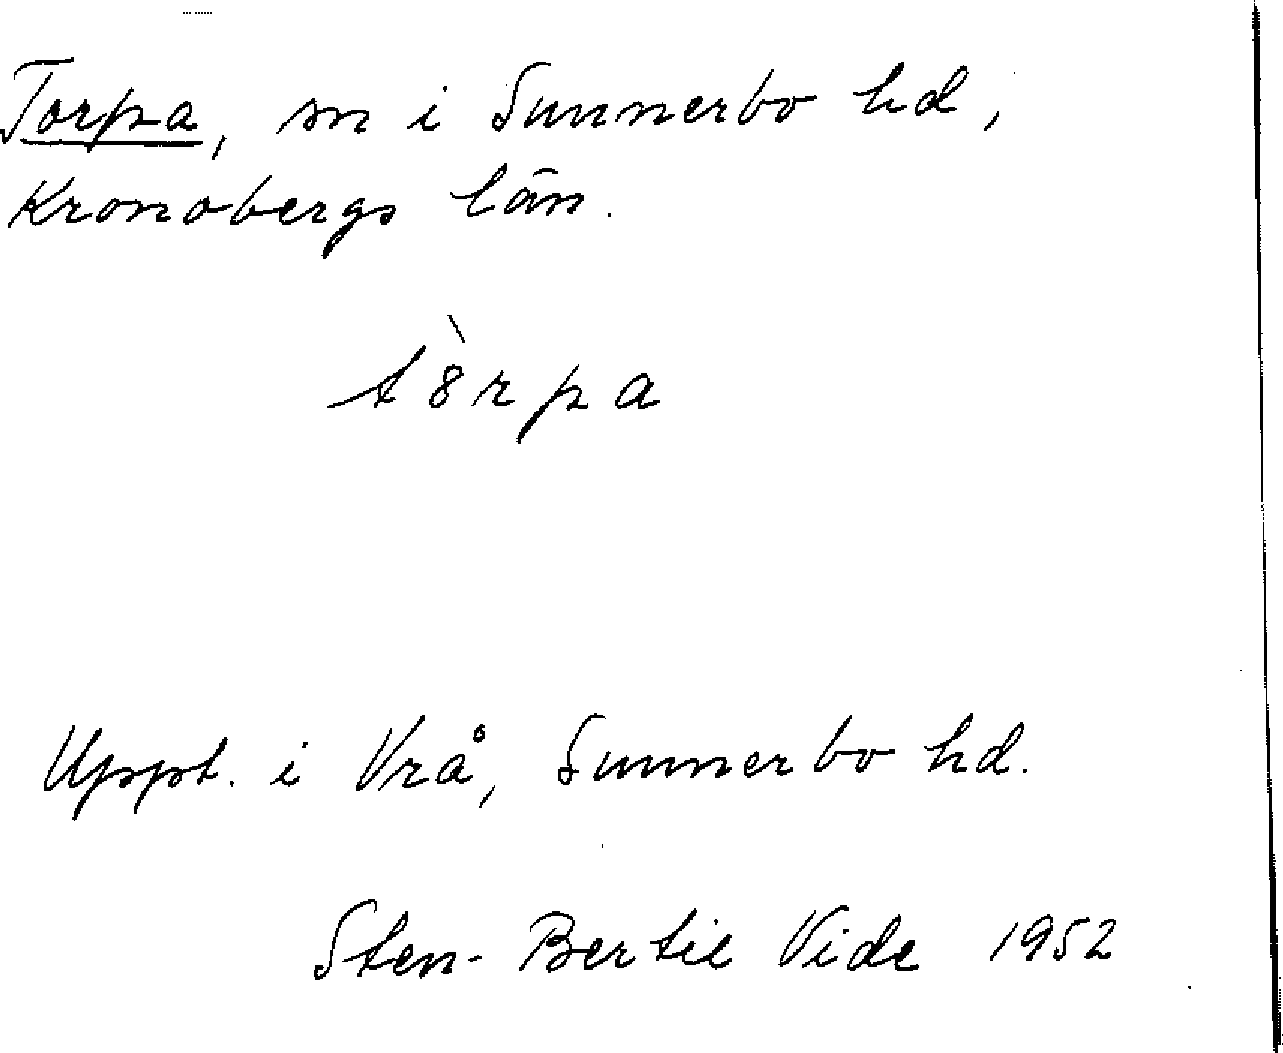 Torpa, sn i Sunnerbo hd,
Kronobergs län.
t8̀rpa
Uppt. i Vrå, Sunnerbo hd.
Sten-Bertil Vide 1952